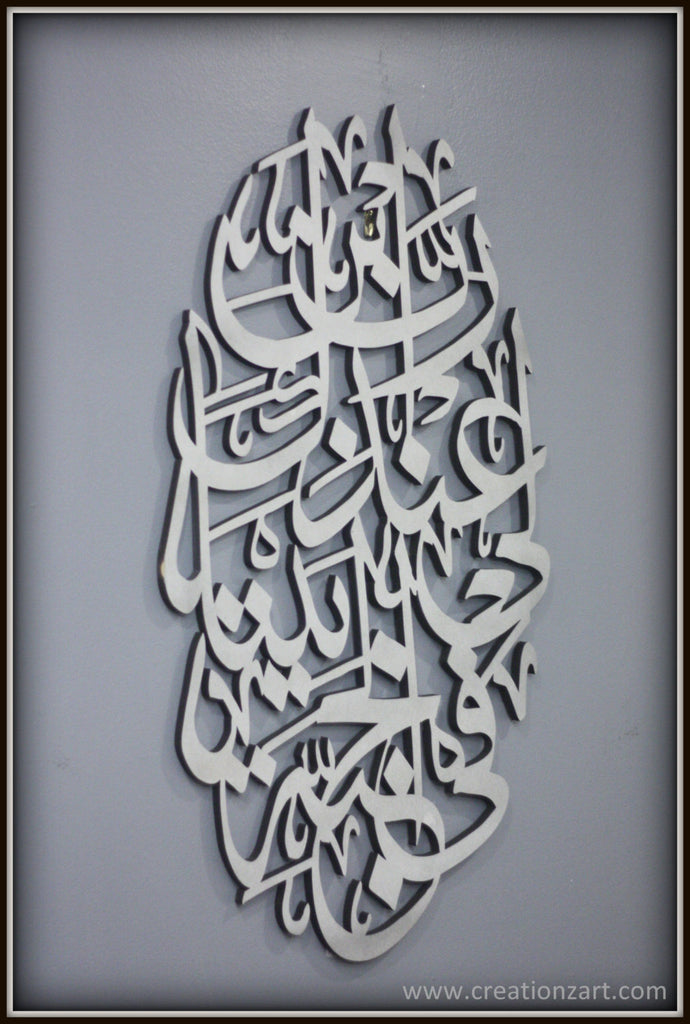 رب ابن
لى عندك
بيتا
فى الجنة
www.creationzart.com